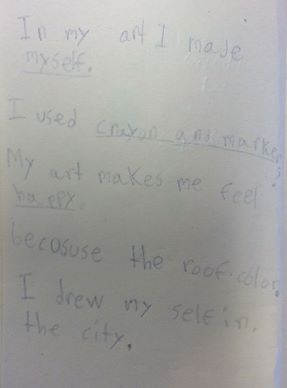 In my art I made
myself.
I used crayon and marker
My art makes me feel
happy.
becosuse the roof. color.
I drew my self in.
the city.